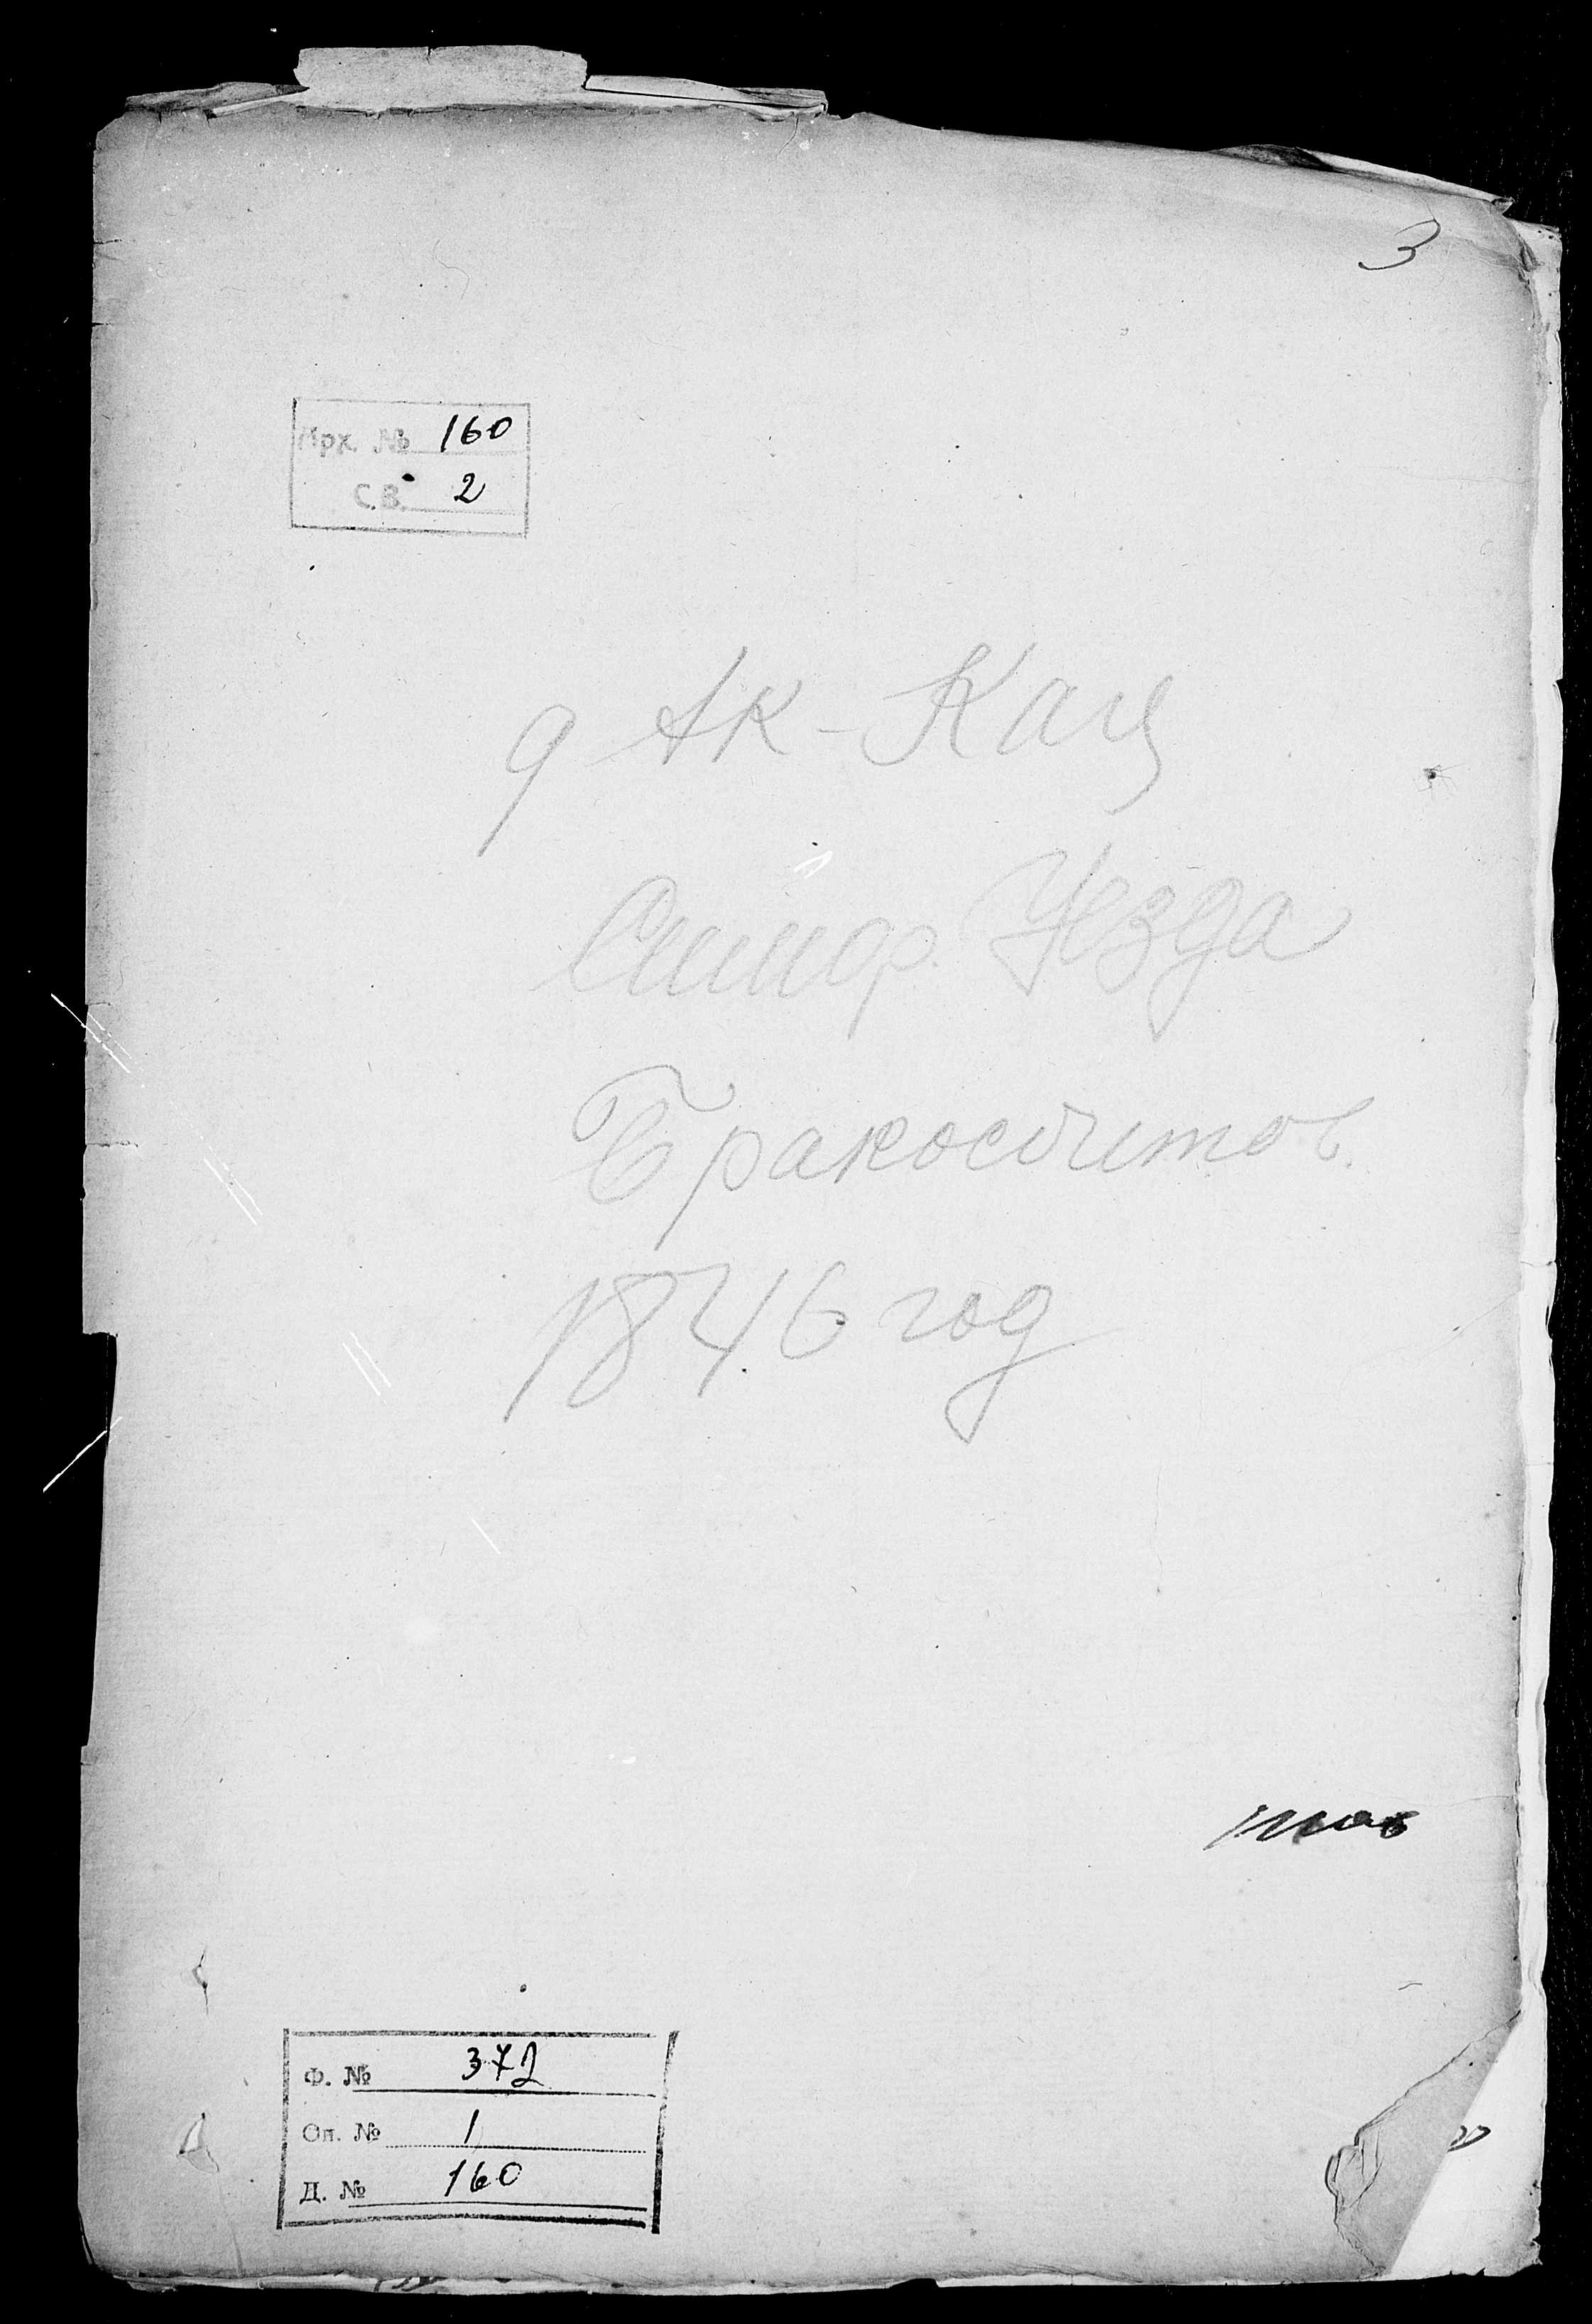 3
Арх. № 160
С.В. 2
д Ак-Кая
Симфр. Уезда
Бракосочитов
1846 год
Ф. № 372
Оп. № 1
Д. № 160